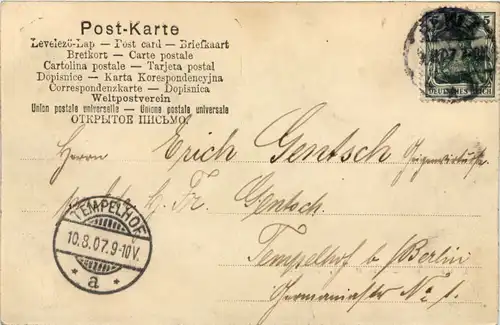 Post-Karte
Levelezö-Lap — Post card — Briefkaart
Brefkort — Carte postale
Cartolina postale — Tarjeta postal
Dopisnice — Karta Korespondencyjna
Correspondenzkarte — Dopisnica
Weltpostverein
Union postale universelle — Unione postale universale
ОТКРЫТОЕ ПИСЬМО
5
DEUTSCHES REICH
Herrn Erich Gentsch
Fr. Gentsch.
Tempelhof b Berlin
Germaniastr No 1.
TEMPELHOF
10.8.07.9-10V.
* a *